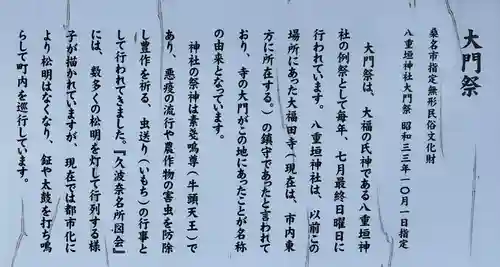 大門祭
桑名市指定無形民俗文化財
八重垣神社大門祭 昭和三三年一〇月一日指定
大門祭は、大福の氏神である八重垣神
社の例祭として毎年、七月最終日曜日に
行われています。八重垣神社は、以前この
場所にあった大福田寺(現在は、市内東
方に所在する。)の鎮守であったと言われて
おり、寺の大門がこの地にあったことが名称
の由来となっています。
神社の祭神は素戔嗚尊(牛頭天王)で
あり、悪疫の流行や農作物の害虫を防除
し豊作を祈る、虫送り(いもち)の行事と
して行われてきました。『久波奈名所図会』
には、数多くの松明を灯して行列する様
子が描かれていますが、現在では都市化に
より松明はなくなり、鉦や太鼓を打ち鳴
らして町内を巡行しています。